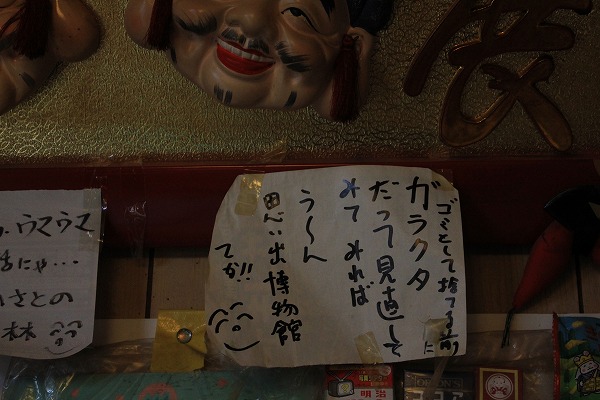 ゴミとして捨てる前に
ガラクタ
だって見直して
みて みれば
う〜ん
思い出博物館
てか!!
ウマウマ
にゃ・・・
さとの
森
明治